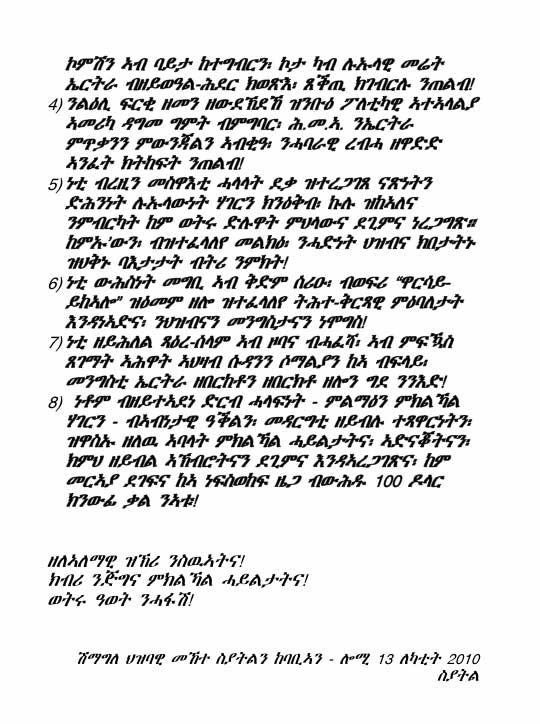 ኮምሽን ኣብ ባይታ ከተግብርን፡ ኮታ ካብ ሉኡላዊ መሬት
ኤርትራ ብዘይወዓል-ሕደር ክወጽእ፡ ጸቕጢ ክንገብር ንጠልብ!
4) ንልዕሊ ፍርቂ ዘመን ዘውደኸደኸ ዝንቡዕ ፖለቲካዊ ኣተኣላልያ
ኣመሪካ ዳግመ ግምት ብምግባር፡ ሕ.መ.ኣ. ንኤርትራ
ምጥቃንን ምውንጃልን ኣብቂዓ፡ ንሓባራዊ ረብሓ ዘዋድድ
ኣንፈት ክትከፍት ንጠልብ!
5) ነቲ ብረዚን መስዋእቲ ሓላላት ደቃ ዝተረጋገጸ ናጽነትን
ድሕንነት ሉኡላውነት ሃገርን ክንዕቅብ፡ ኩሉ ዝከኣለና
ንምብርካት ከም ወትሩ ድሉዋት ምህላውና ደጊምና ነረጋግጽ።
ከምኡ'ውን፡ ብዝተፈላለየ መልክዕ፡ ንሓድነት ህዝብና ክበታትኑ
ዝህቅኑ ባእታታት ብትሪ ንምክት!
6) ነቲ ውሕስነት መግቢ ኣብ ቅድም ሰሪዑ፡ ብወፍሪ “ዋርሳይ-
ይከኣሎ” ዝዕመም ዘሎ ዝተፈላለየ ትሕተ-ቅርጻዊ ምዕባለታት
እንዳነኣድና፡ ንህዝብናን መንግስታናን ነሞግስ!
7) ነቲ ዘይሕለል ጻዕረ-ሰላም ኣብ ዞባና ብሓፈሻ፡ ኣብ ምፍኳስ
ጸገማት ኣሕዋት ኣህዛብ ሱዳንን ሶማልያን ከኣ ብፍላይ፡
መንግስቲ ኤርትራ ዘበርከቶን ዘበርክቶ ዘሎን ግደ ንንእድ!
8) ነቶም ብዘይተኣደነ ድርብ ሓላፍነት - ምልማዕን ምክልኻል
ሃገርን - ብኣብነታዊ ዓቕልን፡ መዳርግቲ ዘይብሉ ተጻዋርነትን፡
ዝዋስኡ ዘለዉ ኣባላት ምክልኻል ሓይልታትና፡ ኣድናቖትናን፡
ክምህ ዘይብል ኣኽብሮትናን ደጊምና እንዳኣረጋገጽና፡ ከም
መርኣያ ደገፍና ከኣ ነፍስወከፍ ዜጋ ብውሕዱ 100 ዶላር
ክንውፊ ቃል ንኣቱ!
ዘለኣለማዊ ዝኽሪ ንስዉኣትና!
ክብሪ ንጅግና ምክልኻል ሓይልታትና!
ወትሩ ዓወት ንሓፋሽ!
ሽማግለ ህዝባዊ መኸተ ስያትልን ከባቢኣን - ሎሚ 13 ለካቲት 2010
ስያትል